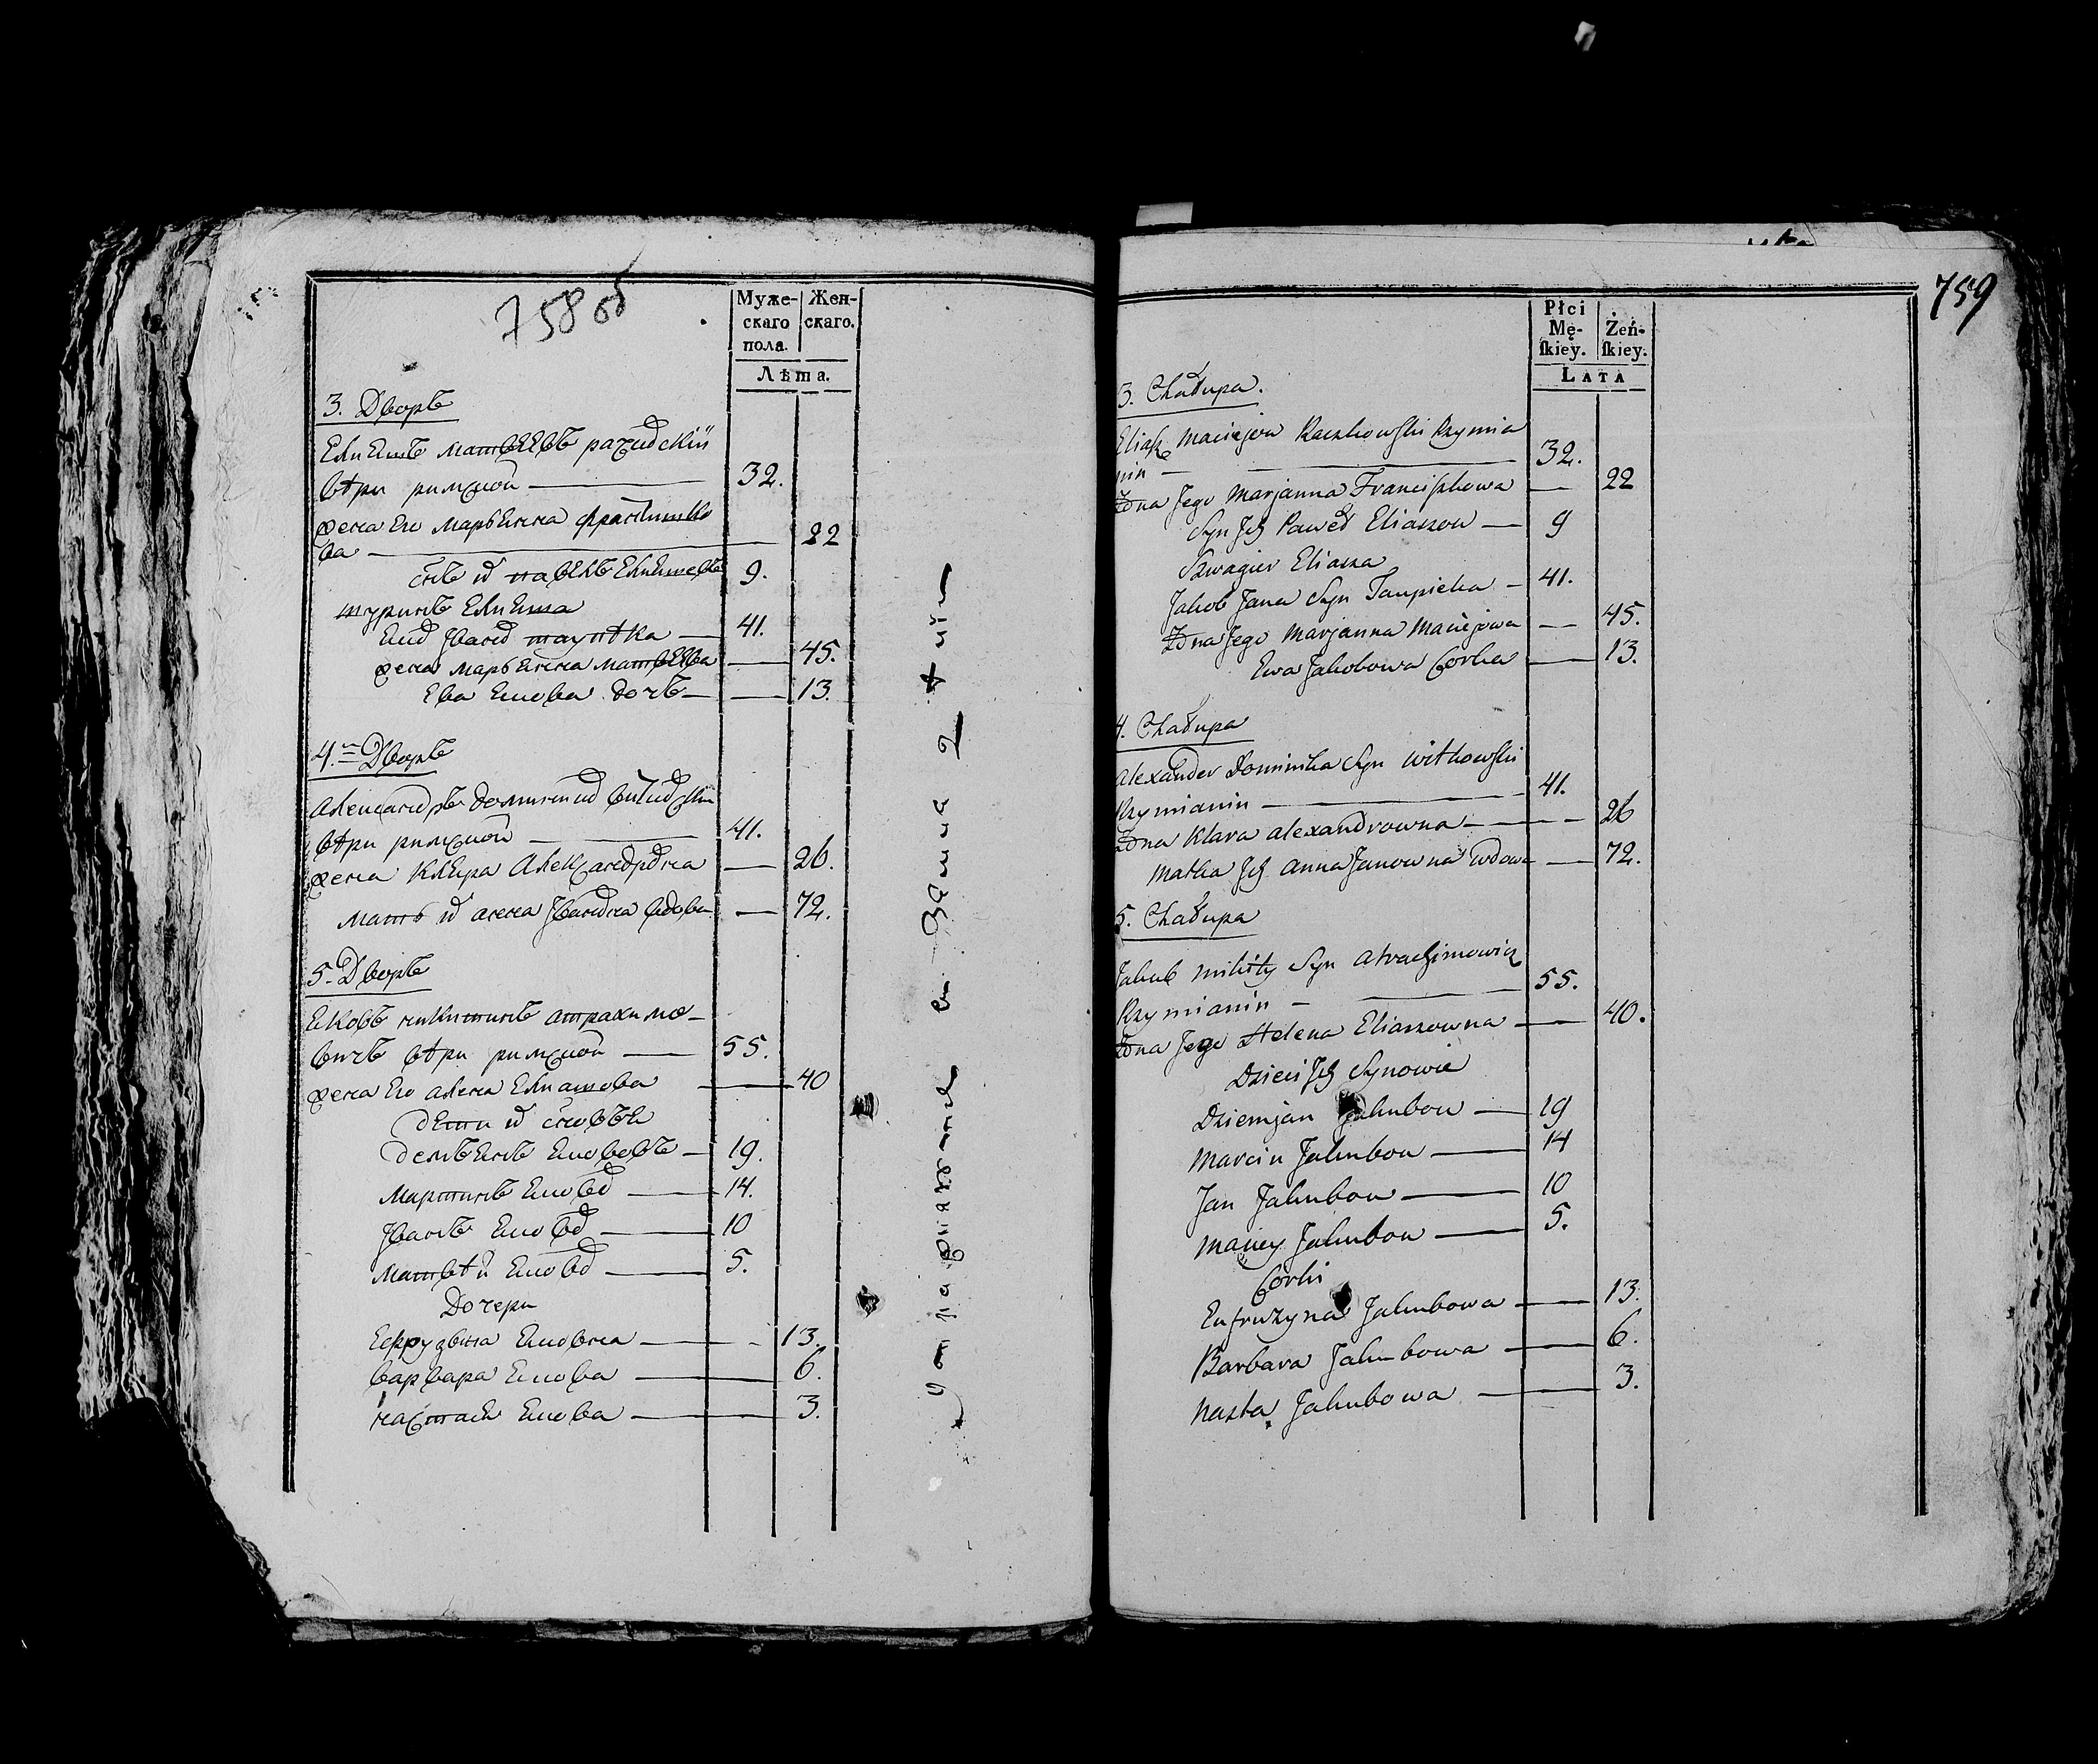 758 об
Муже-
скаго
пола.
Жен-
скаго.
Лѣта.
3. Дворъ
Елиешъ матвеевъ
вѣры римской — 32.
жена Его марьенна францишко
ва — 22
сынъ их павелъ Елиешевъ 9.
шуринъ Елиеша
— 41.
жена марьенна матвеева — 45.
Ева Екова дочь — 13.
4й Дворъ
Александръ
вѣры римской — 41.
жена Клера Александровна — 26.
мать их анна Ивановна вдова — 72.
5. Дворъ
Екобъ никитинъ атрахимо-
вичъ вѣры римской — 55.
жена Его алена Елиашова — 40
дети их сыновьи
демьенъ Екововъ — 19.
мартинъ Еково — 14.
Иванъ Еково — 10
матвѣй Еково — 5.
Дочери
Еффрузина Ековна — 13.
варвара Екова — 6.
настасья Екова — 3.
759
Płci
Mę-
ſkiey.
Żeń-
ſkiey.
LATA
3. Chałupa.
Eliasz Maciejow Raczkowski Rzymia
nin — 32.
Żona Jego Marjanna Franciszkowa — 22
Syn Ich Paweł Eliaszow — 9
Szwagier Eliasza
Jakob Jana Syn — 41.
Żona Jego Marjanna Maciejowa — 45.
Ewa Jakobowa Corka — 13.
4. Chałupa
Alexander Dominika Syn Witkowski
Rzymianin — 41.
Żona Klara Alexandrowna — 26
Matka Ich Anna Janowna wdowa — 72.
5. Chałupa
Jakub Mikity Syn Atrachimowicz
Rzymianin — 55.
Żona Jego Helena Eliaszowna — 40.
Dzieci Ich Synowie
Dziemjan Jakubow — 19
Marcin Jakubow — 14
Jan Jakubow — 10
Maciey Jakubow — 5.
Corki
Eufruzyna Jakubowa — 13.
Barbara Jakubowa — 6.
Nasta Jakubowa — 3.